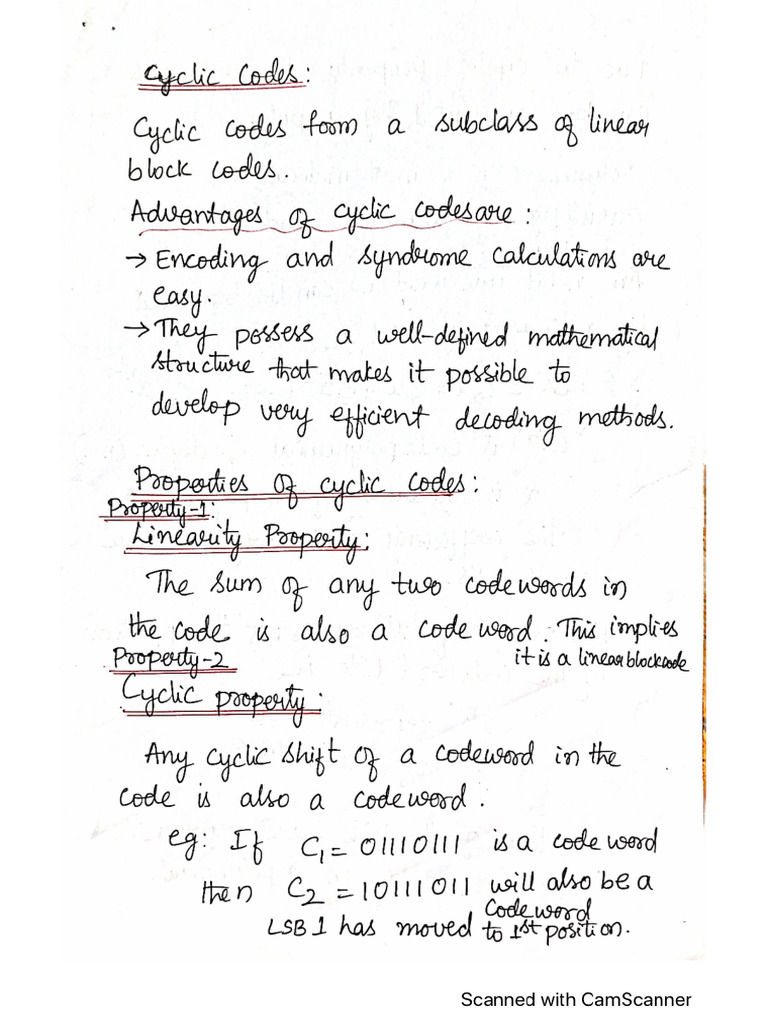 Cyclic Codes:
Cyclic codes form a subclass of linear
block codes.
Advantages of cyclic codes are:
→ Encoding and syndrome calculations are
easy.
→ They possess a well-defined mathematical
structure that makes it possible to
develop very efficient decoding methods.
Properties of cyclic codes:
Property-1:
Linearity Property:
The sum of any two codewords in
the code is also a code word. This implies
it is a linear block code
Property-2
Cyclic property:
Any cyclic shift of a codeword in the
code is also a codeword.
eg: If C₁ = 01110111 is a code word
then C₂ = 10111011 will also be a
codeword
LSB 1 has moved to 1st position.
Scanned with CamScanner